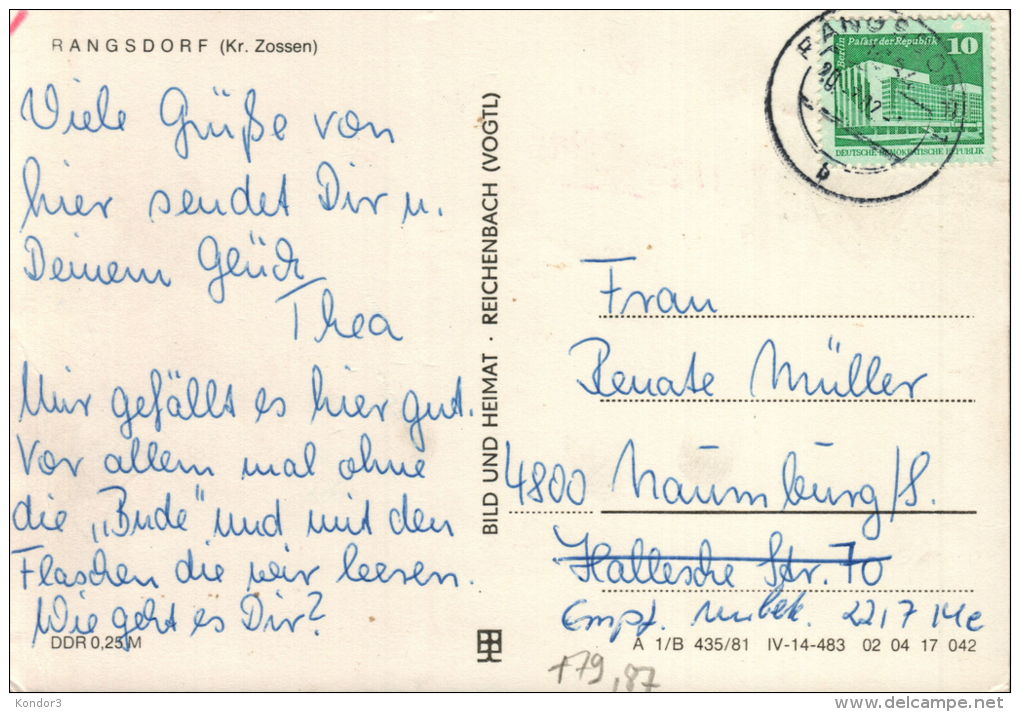 RANGSDORF (Kr. Zossen)
Viele Grüße von
hier sendet Dir u.
Deinem Glück
Thea
Mir gefällt es hier gut.
Vor allem mal ohne
die „Bude“ und mit den
Flaschen die wir leeren.
Wie geht es Dir?
DDR 0,25 M
BILD UND HEIMAT · REICHENBACH (VOGTL)
Berlin Palast der Republik 10
DEUTSCHE DEMOKRATISCHE REPUBLIK
RANGSDORF
b
Frau
Renate Müller
4800 Naumburg/S.
Hallesche Str. 70
Empf. unbek. 22/7
A 1/B 435/81 IV-14-483 02 04 17 042
+79,87
Kondor3
delcampe.net